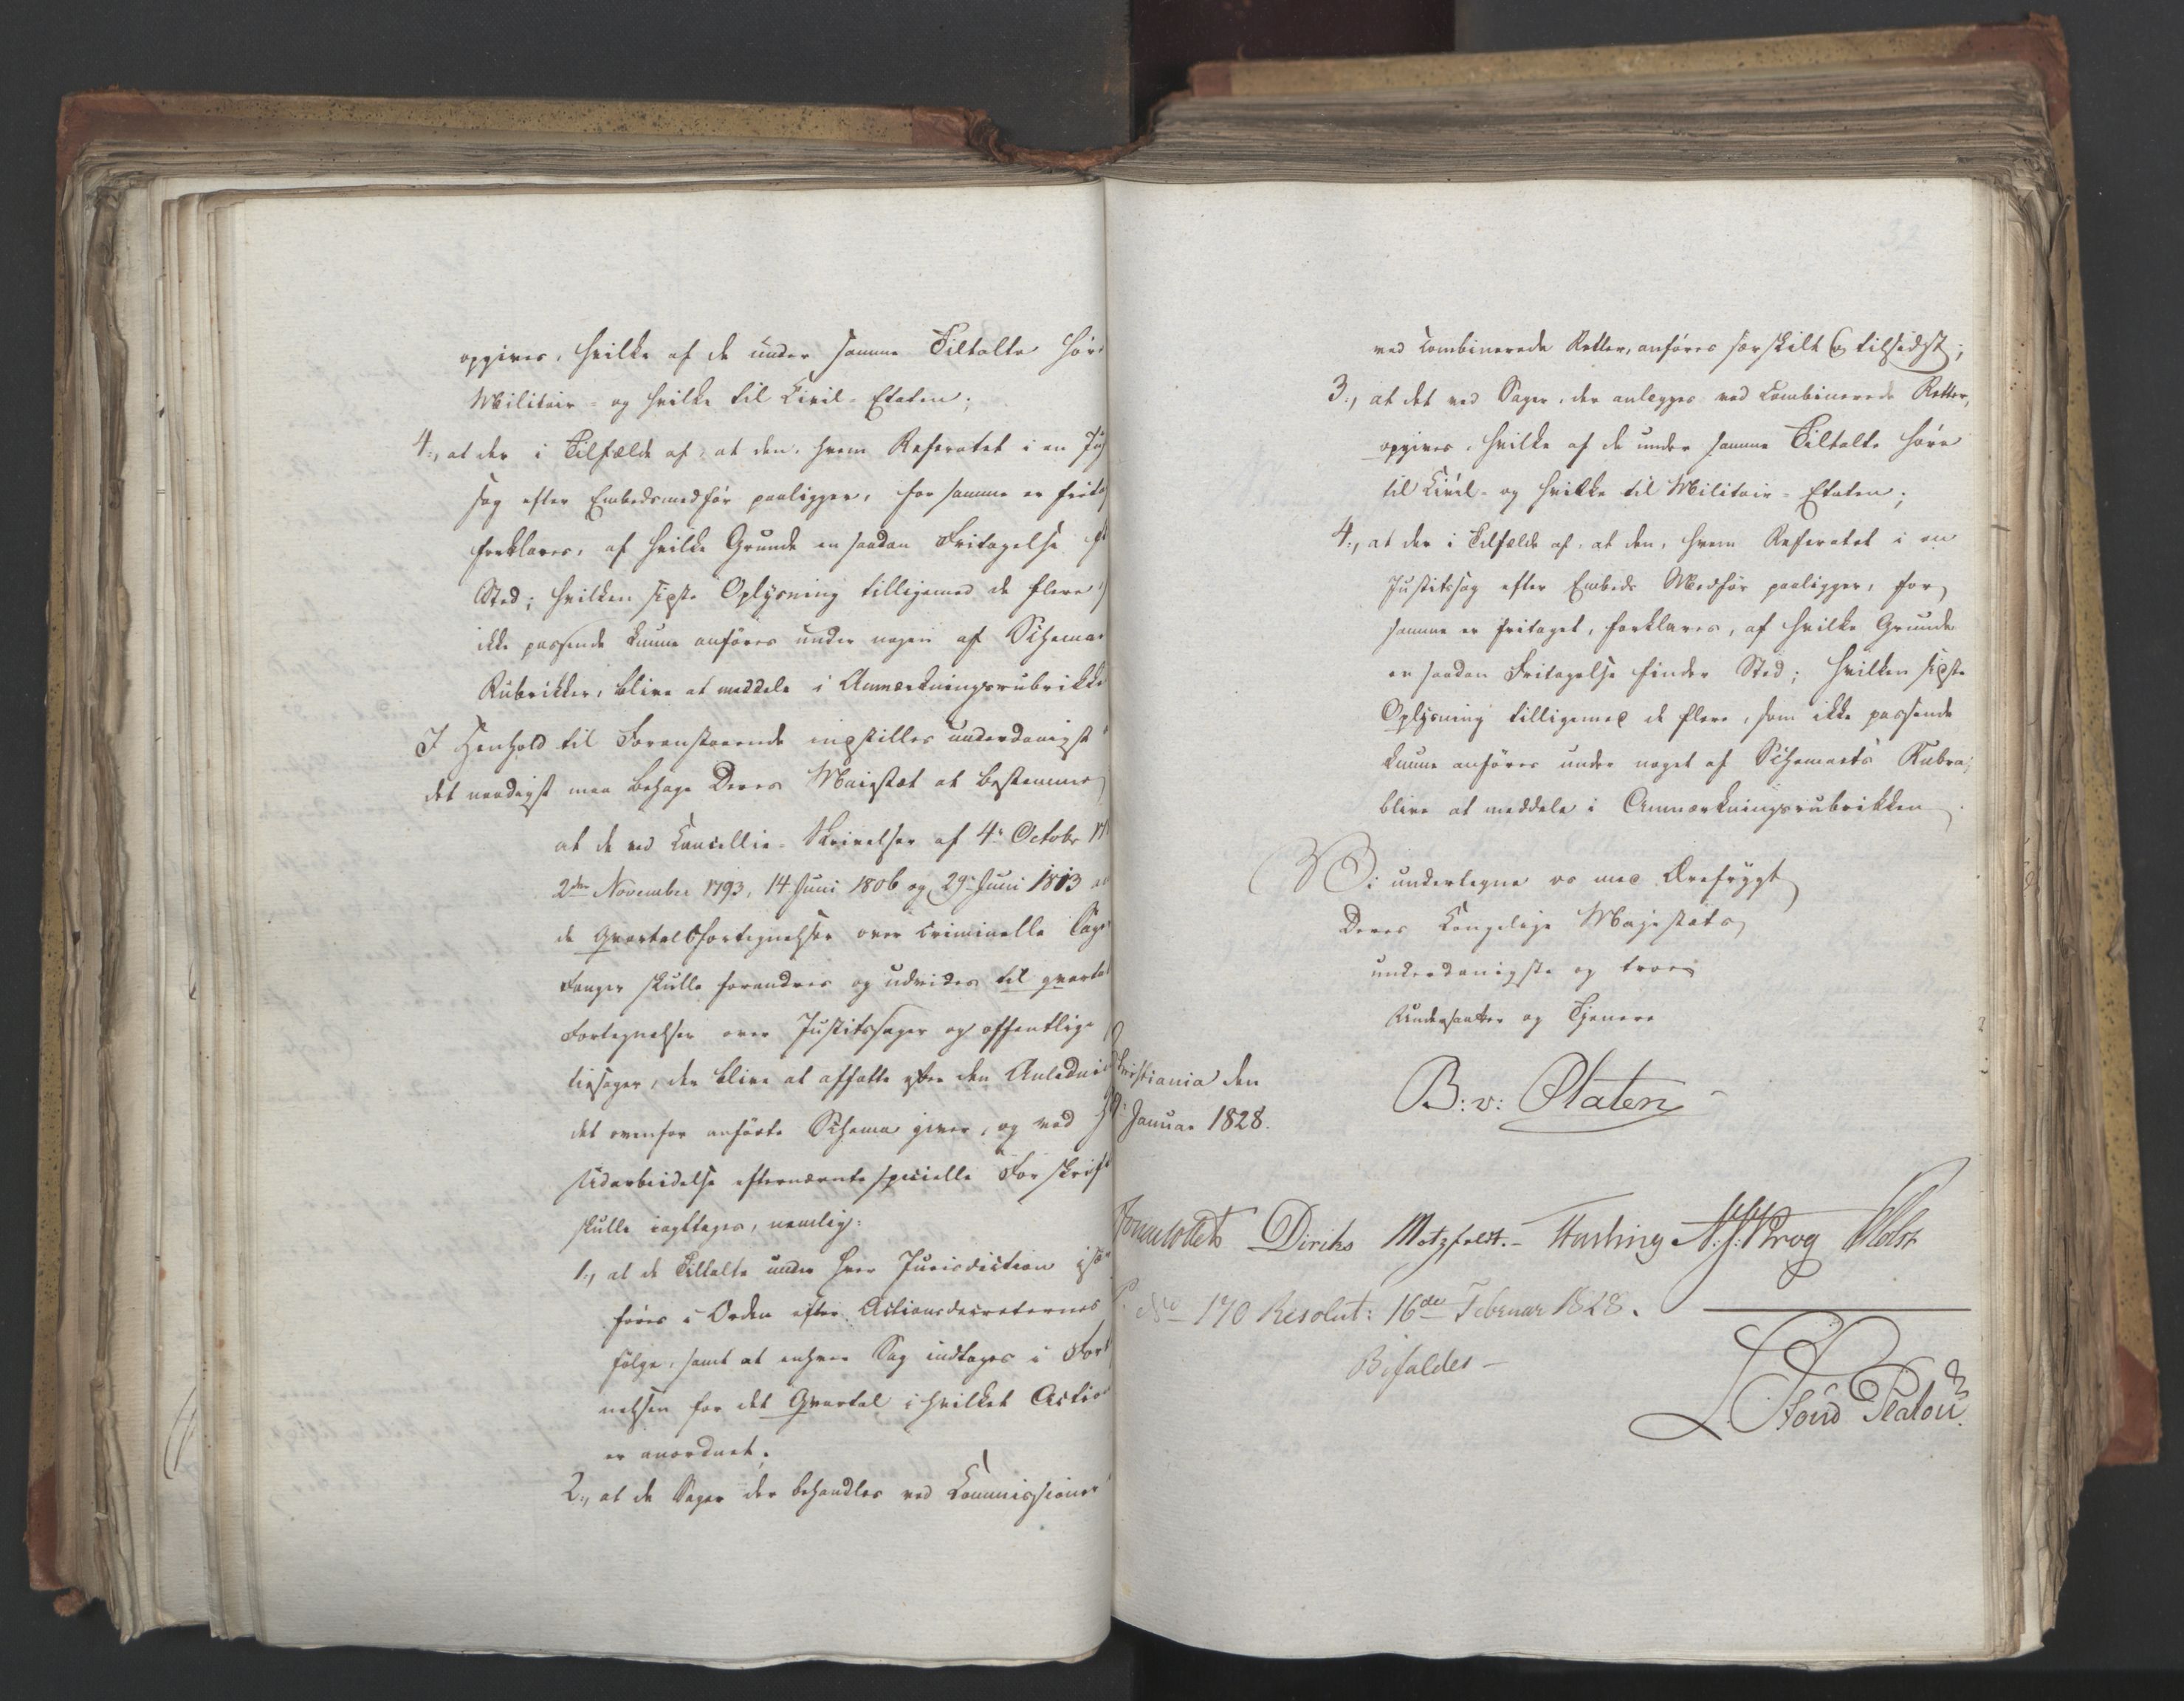 opgives, hvilke af de under samme Tiltalte hør
Militair- og hvilke til Civil-Etaten;
4., at der i Tilfælde af, at den, hvem Referatet i en Ju
sag efter Embedsmedfør paaligger, for samme er frita
forklares, af hvilke Grunde en saadan Fritagelse
Sted; hvilken sidste Oplysning tilligemed de flere
ikke passende kunne anføres under nogen af Schema
Rubrikker, blive at meddele i Anmærkningsrubrikke
I Henhold til Foranstaaende indstilles underdanigst
det naadigst maa behage Deres Majestæt at bestemme
at de ved Cancellie-Skrivelser af 4de Octobr 17
2den November 1793, 14 Juni 1806 og 29de Juni 1813 an
de Qvartalsfortegnelser over criminelle Sage
Fanger skulle forandres og udvides til qvartal
Fortegnelser over Justitssager og offentlige
tiesager, der blive at affatte efter den Anledni
det ovenfor anførte Schema giver, og ved
Udarbeidelse efternævnte specielle Forskrif
skulle iagttages, nemlig:
1., at de Tiltalte under hver Jurisdiction
føres i Orden efter Actionsdecreternes
følge, samt at enhver Sag indtages i Fort
nelsen for det Qvartal i hvilket Actio
er anordnet;
2., at de Sager der behandles ved Commissioner
ved combinerede Retter, anføres særskilt og tilsidst;
3., at det ved Sager, der anlægges ved combinerede Retter,
opgives, hvilke af de under samme Tiltalte høre
til Civil- og hvilke til Militair-Etaten;
4., at der i Tilfælde af, at den, hvem Referatet i en
Justitssag efter Embeds Medfør paaligger, for
samme er fritaget, forklares, af hvilke Grunde
en saadan Fritagelse finder Sted; hvilken sidste
Oplysning tilligemed de flere, som ikke passende
kunne anføres under noget af Schemaets Rubra,
blive at meddele i Anmærkningsrubrikken.
Vi undertegne os med Ærefrygt
Deres Kongelige Majestæts
underdanigste og troe
Undersaatter og Tjenere
Christiania den
Januar 1828.
B: v: Platen
Diriks Motzfeldt. Fasting A. J. Krog Holst
No 170 Resolut: 16de Februar 1828.
Bifaldes